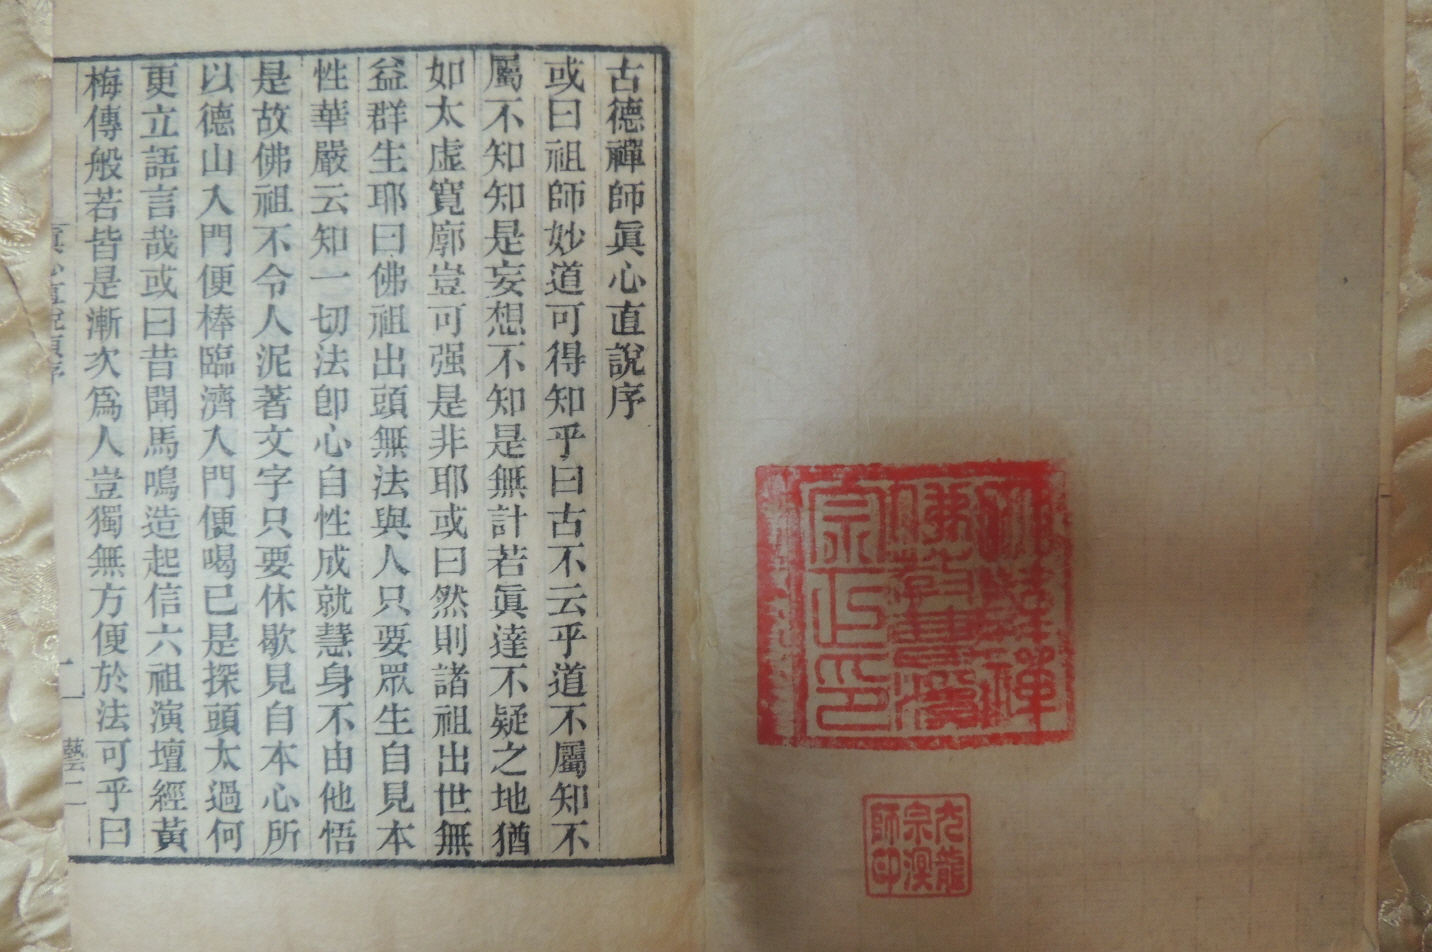 古德禪師眞心直說序
或曰祖師妙道可得知乎曰古不云乎道不屬知不
屬不知知是妄想不知是無計若眞達不疑之地猶
如太虛寬廓豈可强是非耶或曰然則諸祖出世無
益群生耶曰佛祖出頭無法與人只要眾生自見本
性華嚴云知一切法卽心自性成就慧身不由他悟
是故佛祖不令人泥著文字只要休歇見自本心所
以德山入門便棒臨濟入門便喝已是探頭太過何
更立語言哉或曰昔聞馬鳴造起信六祖演壇經黃
梅傳般若皆是漸次爲人豈獨無方便於法可乎曰
藝二
宗
師印